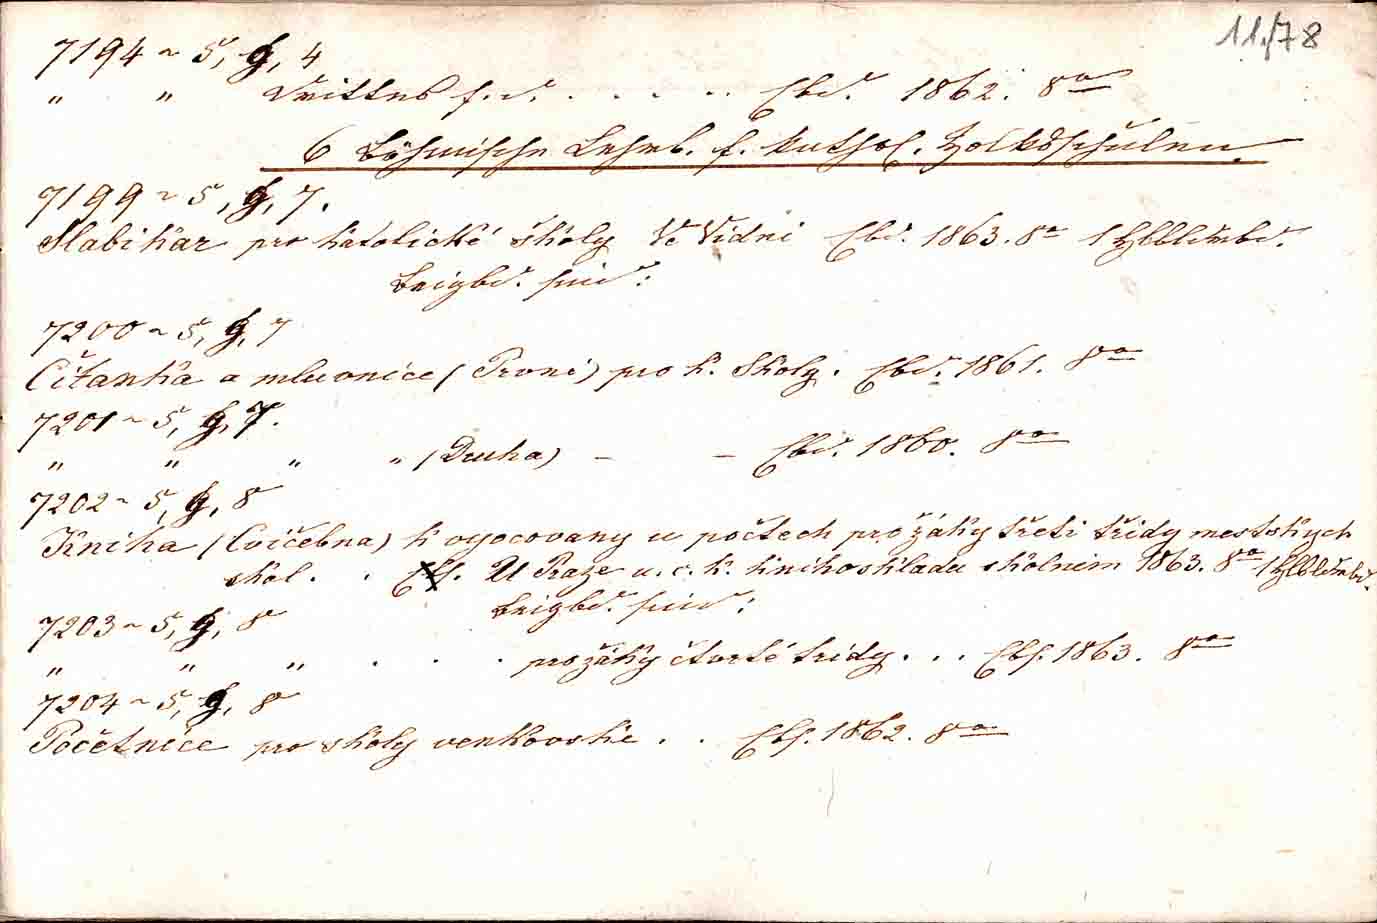 11./78
7194 ~ 5, g, 4
" " Drittes f. d. . . . . . Ebd. 1862. 8º
6 Böhmische Lehrb. f. kathol. Volksschulen.
7199 ~ 5, g, 7.
Slabikar pro katolické školy Ve Vídni Ebd. 1863. 8º 1 Hlblnwbd.
7200 ~ 5, g, 7
Čítanka a mluvnice (Prvni) pro k. Skoly. Ebd. 1861. 8º
7201 ~ 5, g, 7.
" " " " (Druha) – – Ebd. 1860. 8º
7202 ~ 5, g, 8
Kniha (Cvičebna) k vyocovany u počtech pro žáky třeti třidy mestskych
skol. . U Praze u. c. k. knihoskladu skolnim 1863. 8º 1 Hlblnwbd.
7203 ~ 5, g, 8
" " " . . . pro žáky čtvrté tridy . . . Ebf. 1863. 8º
7204 ~ 5, g, 8
Početnice pro skoly venkovské . . Ebf. 1862. 8º